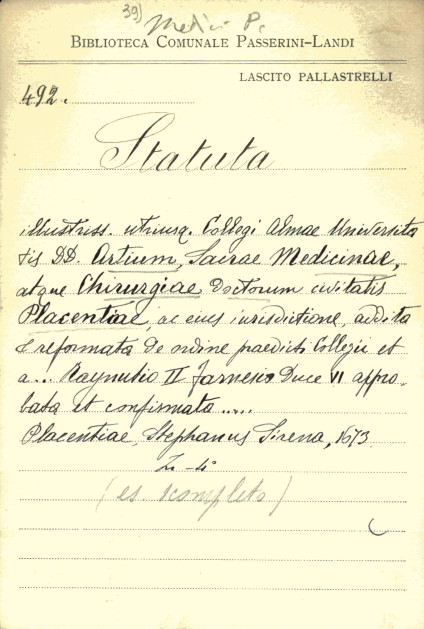 39) Medici Pc
BIBLIOTECA COMUNALE PASSERINI-LANDI
LASCITO PALLASTRELLI
492.
Statuta
illustriss. utriusq. Collegi Almae Universita
tis DD. Artium, Sacrae Medicinae,
atque Chirurgiae Doctorum civitatis
Placentiae, ac eius iurisdictione, addita
& reformata de ordine praedicti Collegii et
a... Raynutio II Farnesio Duce VI appro-
bata et confirmata .....
Placentiae, Stephanus Sirena, 1673
in-4°
(es. incompleto)